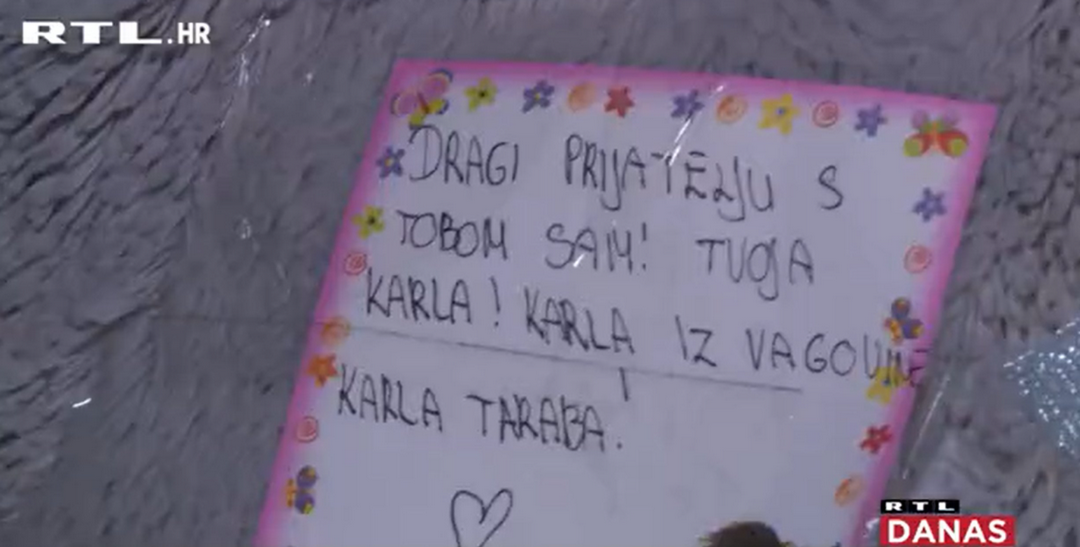 RTL.HR
DRAGI PRIJATELJU S
TOBOM SAM! TUGA
KARLA! KARLA IZ VAGOUNE
KARLA TARABA.
RTL
DANAS